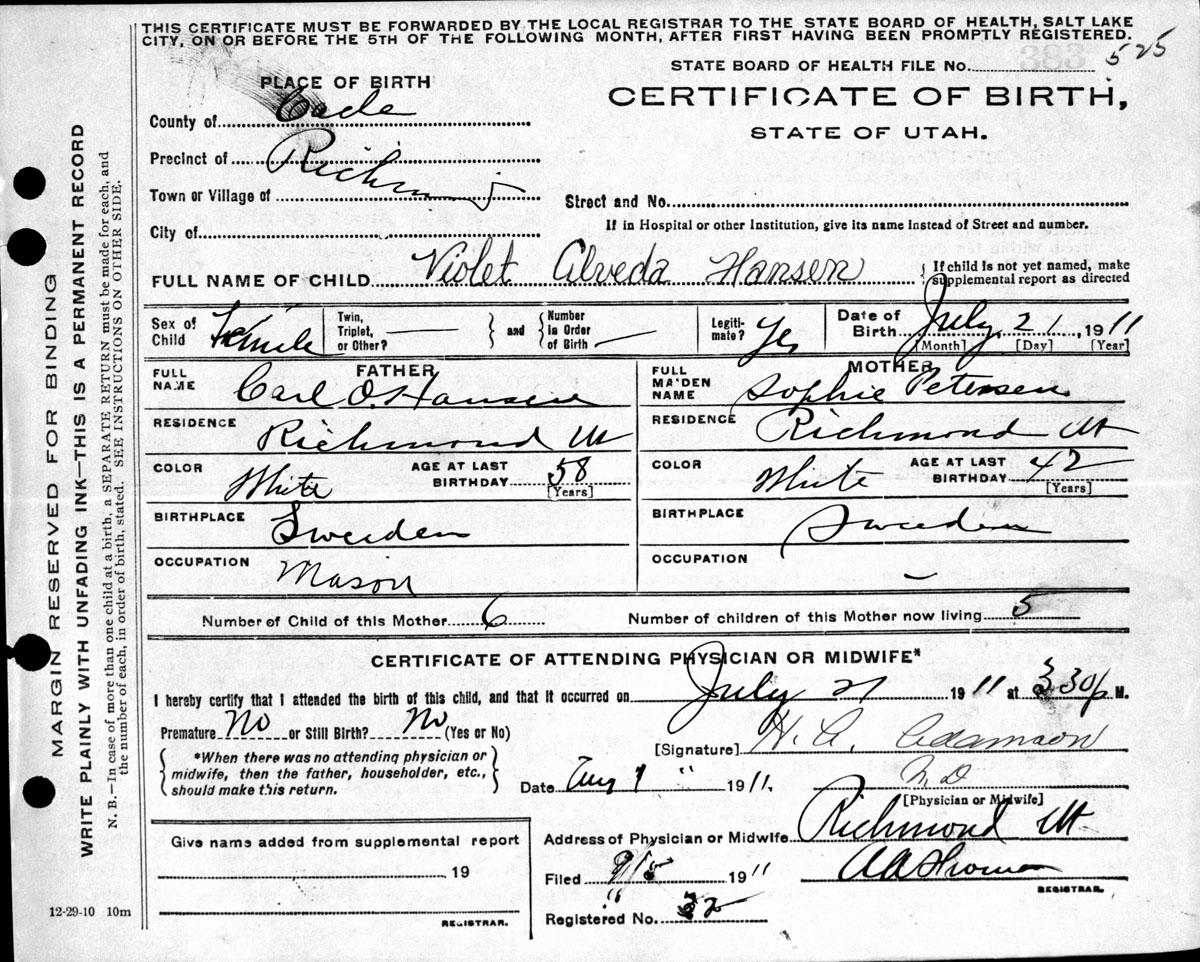 THIS CERTIFICATE MUST BE FORWARDED BY THE LOCAL REGISTRAR TO THE STATE BOARD OF HEALTH, SALT LAKE
CITY, ON OR BEFORE THE 5TH OF THE FOLLOWING MONTH, AFTER FIRST HAVING BEEN PROMPTLY REGISTERED.
STATE BOARD OF HEALTH FILE No. 383 525
PLACE OF BIRTH
CERTIFICATE OF BIRTH,
STATE OF UTAH.
County of Cache
Precinct of Richmond
Town or Village of
Street and No.
City of
If in Hospital or other Institution, give its name instead of Street and number.
FULL NAME OF CHILD Violet Alveda Hansen { If child is not yet named, make
supplemental report as directed
Sex of Child Female
Twin, Triplet, or Other? —
and
Number in Order of Birth —
Legitimate? Yes
Date of Birth July 21, 1911
[Month] [Day] [Year]
FATHER
FULL NAME Carl O. Hansen
RESIDENCE Richmond Ut
COLOR White AGE AT LAST BIRTHDAY 38
[Years]
BIRTHPLACE Sweden
OCCUPATION Mason
MOTHER
FULL MAIDEN NAME Sophie Petersen
RESIDENCE Richmond Ut
COLOR White AGE AT LAST BIRTHDAY 42
[Years]
BIRTHPLACE Sweden
OCCUPATION –
Number of Child of this Mother 6 Number of children of this Mother now living 5
CERTIFICATE OF ATTENDING PHYSICIAN OR MIDWIFE*
I hereby certify that I attended the birth of this child, and that it occurred on July 21 1911 at 330 p M.
Premature No or Still Birth? No (Yes or No)
{ *When there was no attending physician or
midwife, then the father, householder, etc.,
should make this return. }
[Signature] H. A. Adamson
M D
[Physician or Midwife]
Date Aug 1 " 1911.
Address of Physician or Midwife Richmond Ut
Filed 1911
REGISTRAR.
Registered No. 32
Give name added from supplemental report
19
REGISTRAR.
12-29-10 10m
MARGIN RESERVED FOR BINDING
WRITE PLAINLY WITH UNFADING INK—THIS IS A PERMANENT RECORD
N. B.—In case of more than one child at a birth, a SEPARATE RETURN must be made for each, and
the number of each, in order of birth, stated. SEE INSTRUCTIONS ON OTHER SIDE.